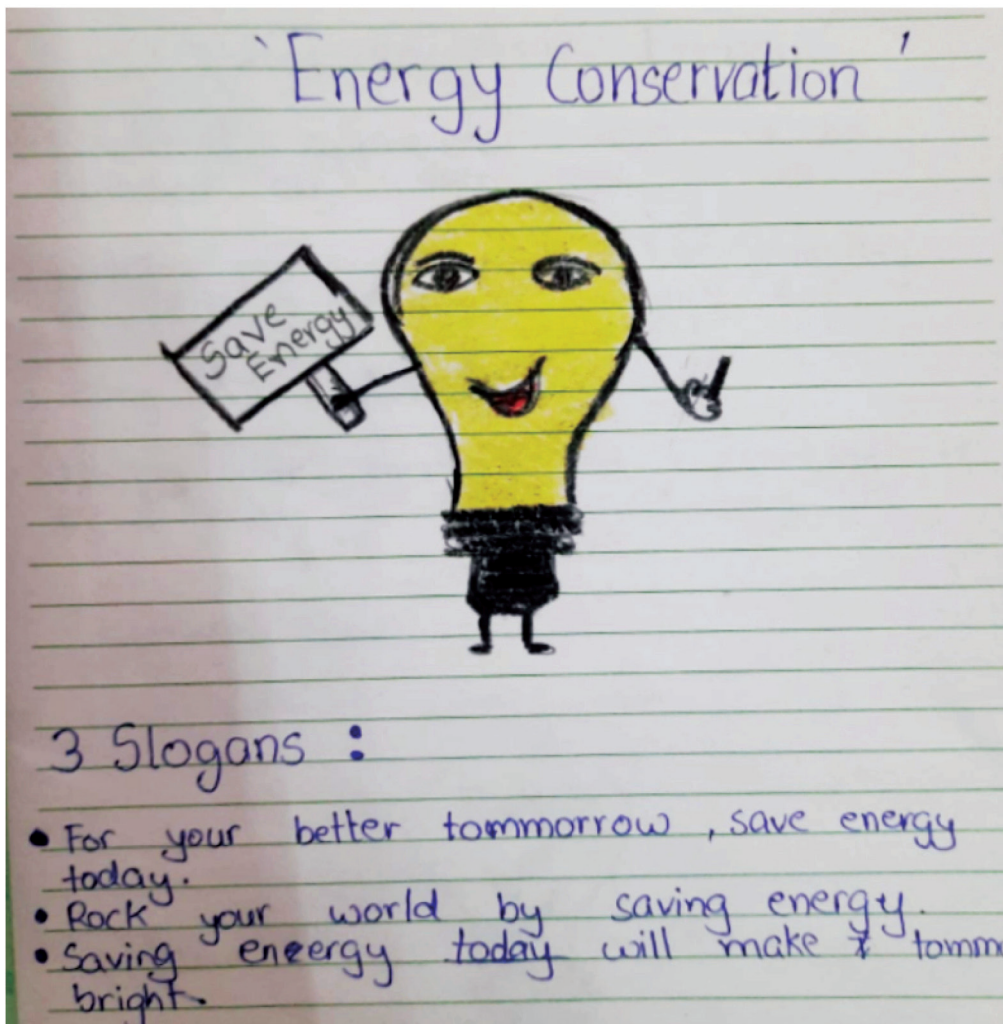 'Energy Conservation'
Save
Energy
3 Slogans :
• For your better tommorrow , save energy
today.
• Rock your world by saving energy.
• Saving energy today will make tomm
bright.